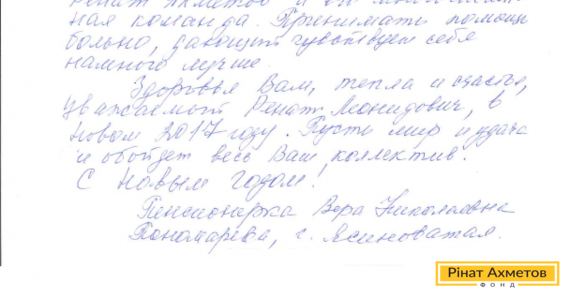 Ренат Ахметов и его многочислен-
ная команда. Принимать помощь
больно, дающий чувствует себя
намного лучше.
Здоровья Вам, тепла и счастья,
уважаемый Ренат Леонидович, в
Новом 2017 году. Пусть мир и удача
и обойдет весь Ваш коллектив.
С Новым годом!
Пенсионерка Вера Николаевна
Пономарёва, г. Ясиноватая.
Рінат Ахметов
ФОНД